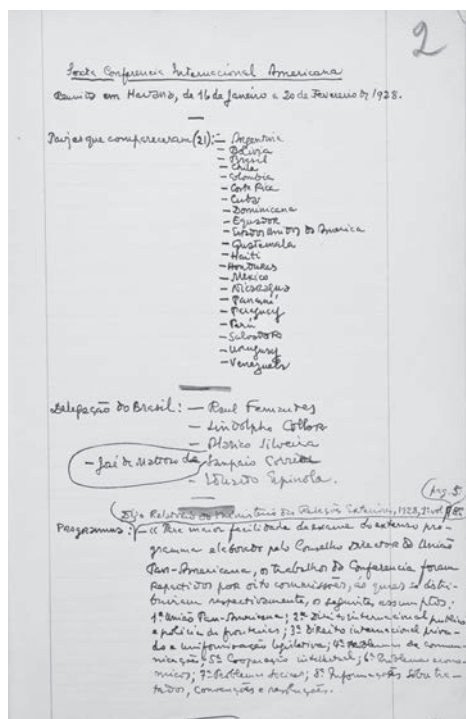 2
Sexta Conferencia Internacional Americana
Reunida em Havana, de 16 de Janeiro a 20 de Fevereiro de 1928.
Paizes que compareceram (21): — Argentina
— Bolivia
— Brasil
— Chile
— Colombia
— Costa Rica
— Cuba
— Dominicana
— Equador
— Estados Unidos da America
— Guatemala
— Haiti
— Honduras
— Mexico
— Nicaragua
— Panamá
— Paraguay
— Perú
— Salvador
— Uruguay
— Venezuela
Delegação do Brasil: — Raul Fernandes
— Lindolpho Collor
— Alarico Silveira
— Sampaio Corrêa
— José de Mattoso
— Eduardo Espinola.
Pag. 5
Relatorio do Ministerio das Relações Exteriores, 1928, 1º vol.
Programma: — « Para maior facilidade do exame do extenso pro-
gramma elaborado pelo Conselho Director da União
Pan-Americana, os trabalhos da Conferencia foram
repartidos por oito commissões, ás quaes se distri-
buiram respectivamente, os seguintes assumptos:
1º União Pan-Americana; 2º Direito internacional publico
e policia de fronteiras; 3º Direito internacional priva-
do e uniformização legislativa; 4º Problemas de commu-
nicação; 5º Cooperação intellectual; 6º Problemas econo-
micos; 7º Problemas sociaes; 8º Informações sobre tra-
tados, convenções e resoluções.